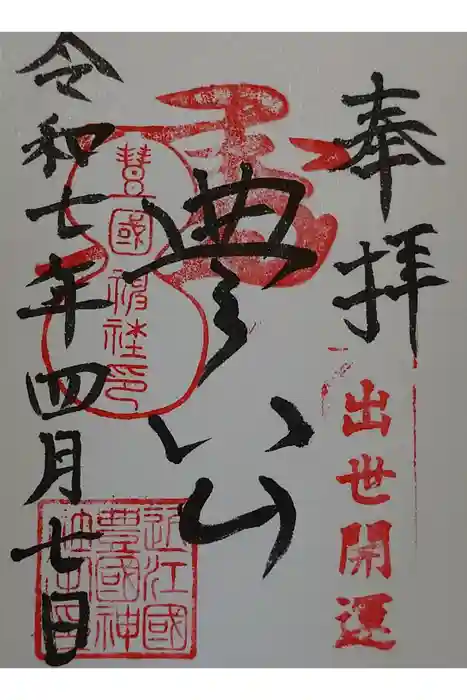 奉拝
出世開運
豊公
豊國神社印
近江國
豊國神
令和七年四月七日